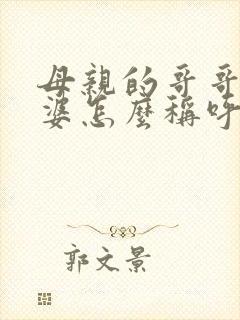 母親的哥哥
婆怎麼稱呼
郭文景